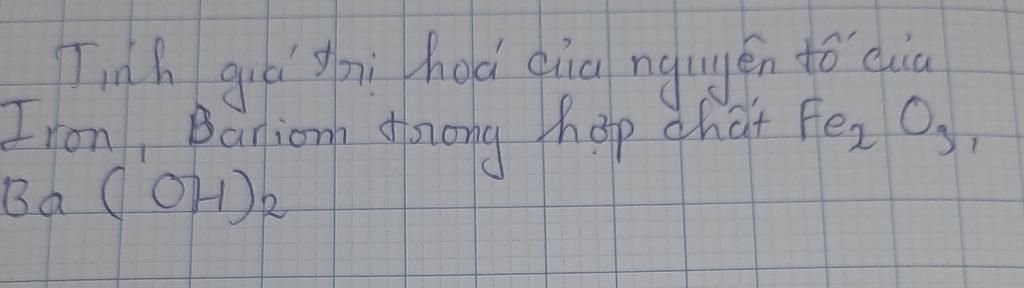 Tính giá trị hoá của nguyên tố của
Iron, Bariom trong hợp chất Fe₂ O₃,
Ba (OH)₂